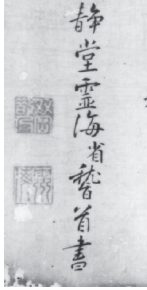 静堂霊海省稽首書